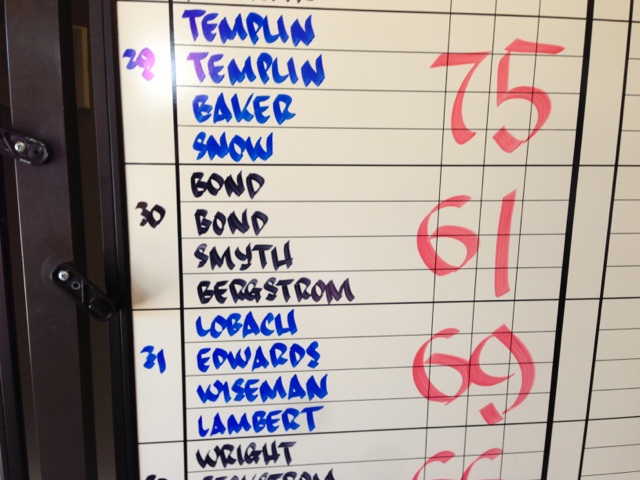 TEMPLIN
29 TEMPLIN 75
BAKER
SNOW
BOND
30 BOND 61
SMYTH
BERGSTROM
LOBACH
31 EDWARDS 69.
WISEMAN
LAMBERT
WRIGHT
66